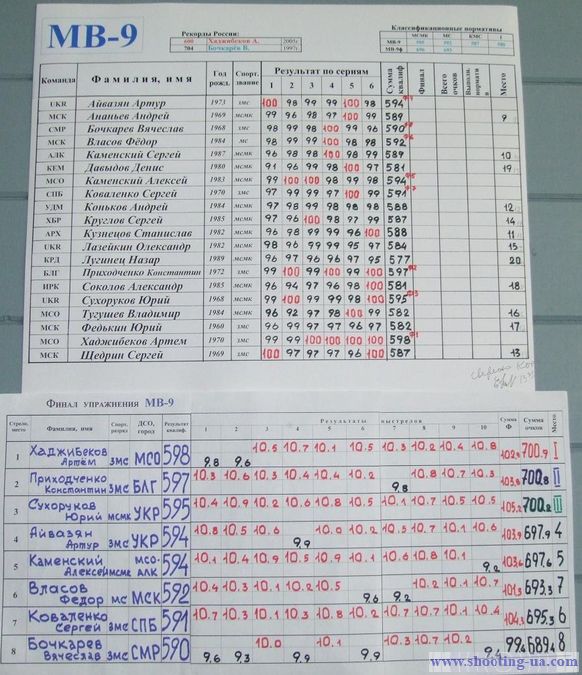 МВ-9
Рекорды России:
600 Хаджибеков А. 2005г.
704 Бочкарёв В. 1997г.
Классификационные нормативы
МСМК МС КМС I
МВ-9
МВ-9ф
Команда Фамилия, имя Год рожд. Спорт. звание Результат по сериям Сумма квалиф Финал Всего очков Выполн. норматив Место
1 2 3 4 5 6
UKR Айвазян Артур 1973 змс 100 98 99 99 100 98 594
МСК Ананьев Андрей 1969 мсмк 99 96 98 97 100 99 589 9
СМР Бочкарев Вячеслав 1968 змс 98 99 98 100 99 96 590
МСК Власов Фёдор 1984 мс 98 99 99 100 98 98 592
АЛК Каменский Сергей 1987 мсмк 96 98 98 100 98 99 589 10
КЕМ Давыдов Денис 1980 мсмк 91 96 99 98 100 97 581 19
МСО Каменский Алексей 1983 мсмк 99 100 100 98 99 98 594
СПБ Коваленко Сергей 1970 змс 97 99 99 97 100 99 591
УДМ Коньков Андрей 1984 мсмк 97 98 99 98 98 98 588 12
ХБР Круглов Сергей 1985 мсмк 97 96 100 98 97 99 587 14
АРХ Кузнецов Станислав 1982 мсмк 97 98 97 100 96 100 588 11
UKR Лазейкин Олександр 1982 мсмк 98 96 99 99 95 97 584 15
КРД Лугинец Назар 1989 мсмк 96 97 96 96 97 95 577 20
БЛГ Приходченко Константин 1972 змс 99 100 99 100 99 100 597
ИРК Соколов Александр 1985 мсмк 96 94 97 96 98 100 581 18
UKR Сухоруков Юрий 1968 змс 100 99 99 99 98 100 595
МСО Тугушев Владимир 1984 мсмк 96 92 97 98 100 99 582 16
МСК Федькин Юрий 1960 змс 96 99 97 97 96 97 582 17
МСО Хаджибеков Артем 1970 змс 99 99 100 100 100 100 598
МСК Щедрин Сергей 1969 змс 100 97 97 97 96 100 587 13
Финал упражнения МВ-9
Стрелк. место Фамилия, имя Спорт. разряд ДСО, город Результат квалиф Результаты выстрелов Сумма Ф Сумма очков Место
1 2 3 4 5 6 7 8 9 10
1 Хаджибеков Артём змс МСО 598 9.8 9.6 10.5 10.7 10.1 10.5 10.3 10.2 10.4 10.8 102.9 700.9 I
2 Приходченко Константин змс БЛГ 597 10.3 10.6 10.2 10.3 10.4 10.4 10.2 9.8 10.8 10.7 10.3 103.8 700.8 II
3 Сухоруков Юрий мсмк УКР 595 10.4 10.9 10.2 10.6 10.8 10.5 10.1 10.7 10.5 10.5 105.2 700.2 III
4 Айвазян Артур змс УКР 594 10.8 10.5 10.6 9.9 10.0 10.2 10.5 10.7 10.1 10.6 103.9 697.9 4
5 Каменский Алексей мсмк МСО-АЛК 594 10.1 10.4 10.9 10.5 10.9 10.1 10.6 10.8 10.1 9.2 103.6 697.6 5
6 Власов Федор мс МСК 592 10.4 10.3 10.1 10.2 10.5 9.6 9.2 10.2 10.1 10.7 101.3 693.3 7
7 Коваленко Сергей змс СПБ 591 10.7 10.3 10.1 10.3 10.8 10.2 10.7 10.7 10.1 10.4 104.3 695.3 6
8 Бочкарев Вячеслав змс СМР 590 9.6 9.3 10.0 9.9 10.1 9.9 10.3 10.7 10.2 9.4 99.4 689.4 8
www.shooting-ua.com